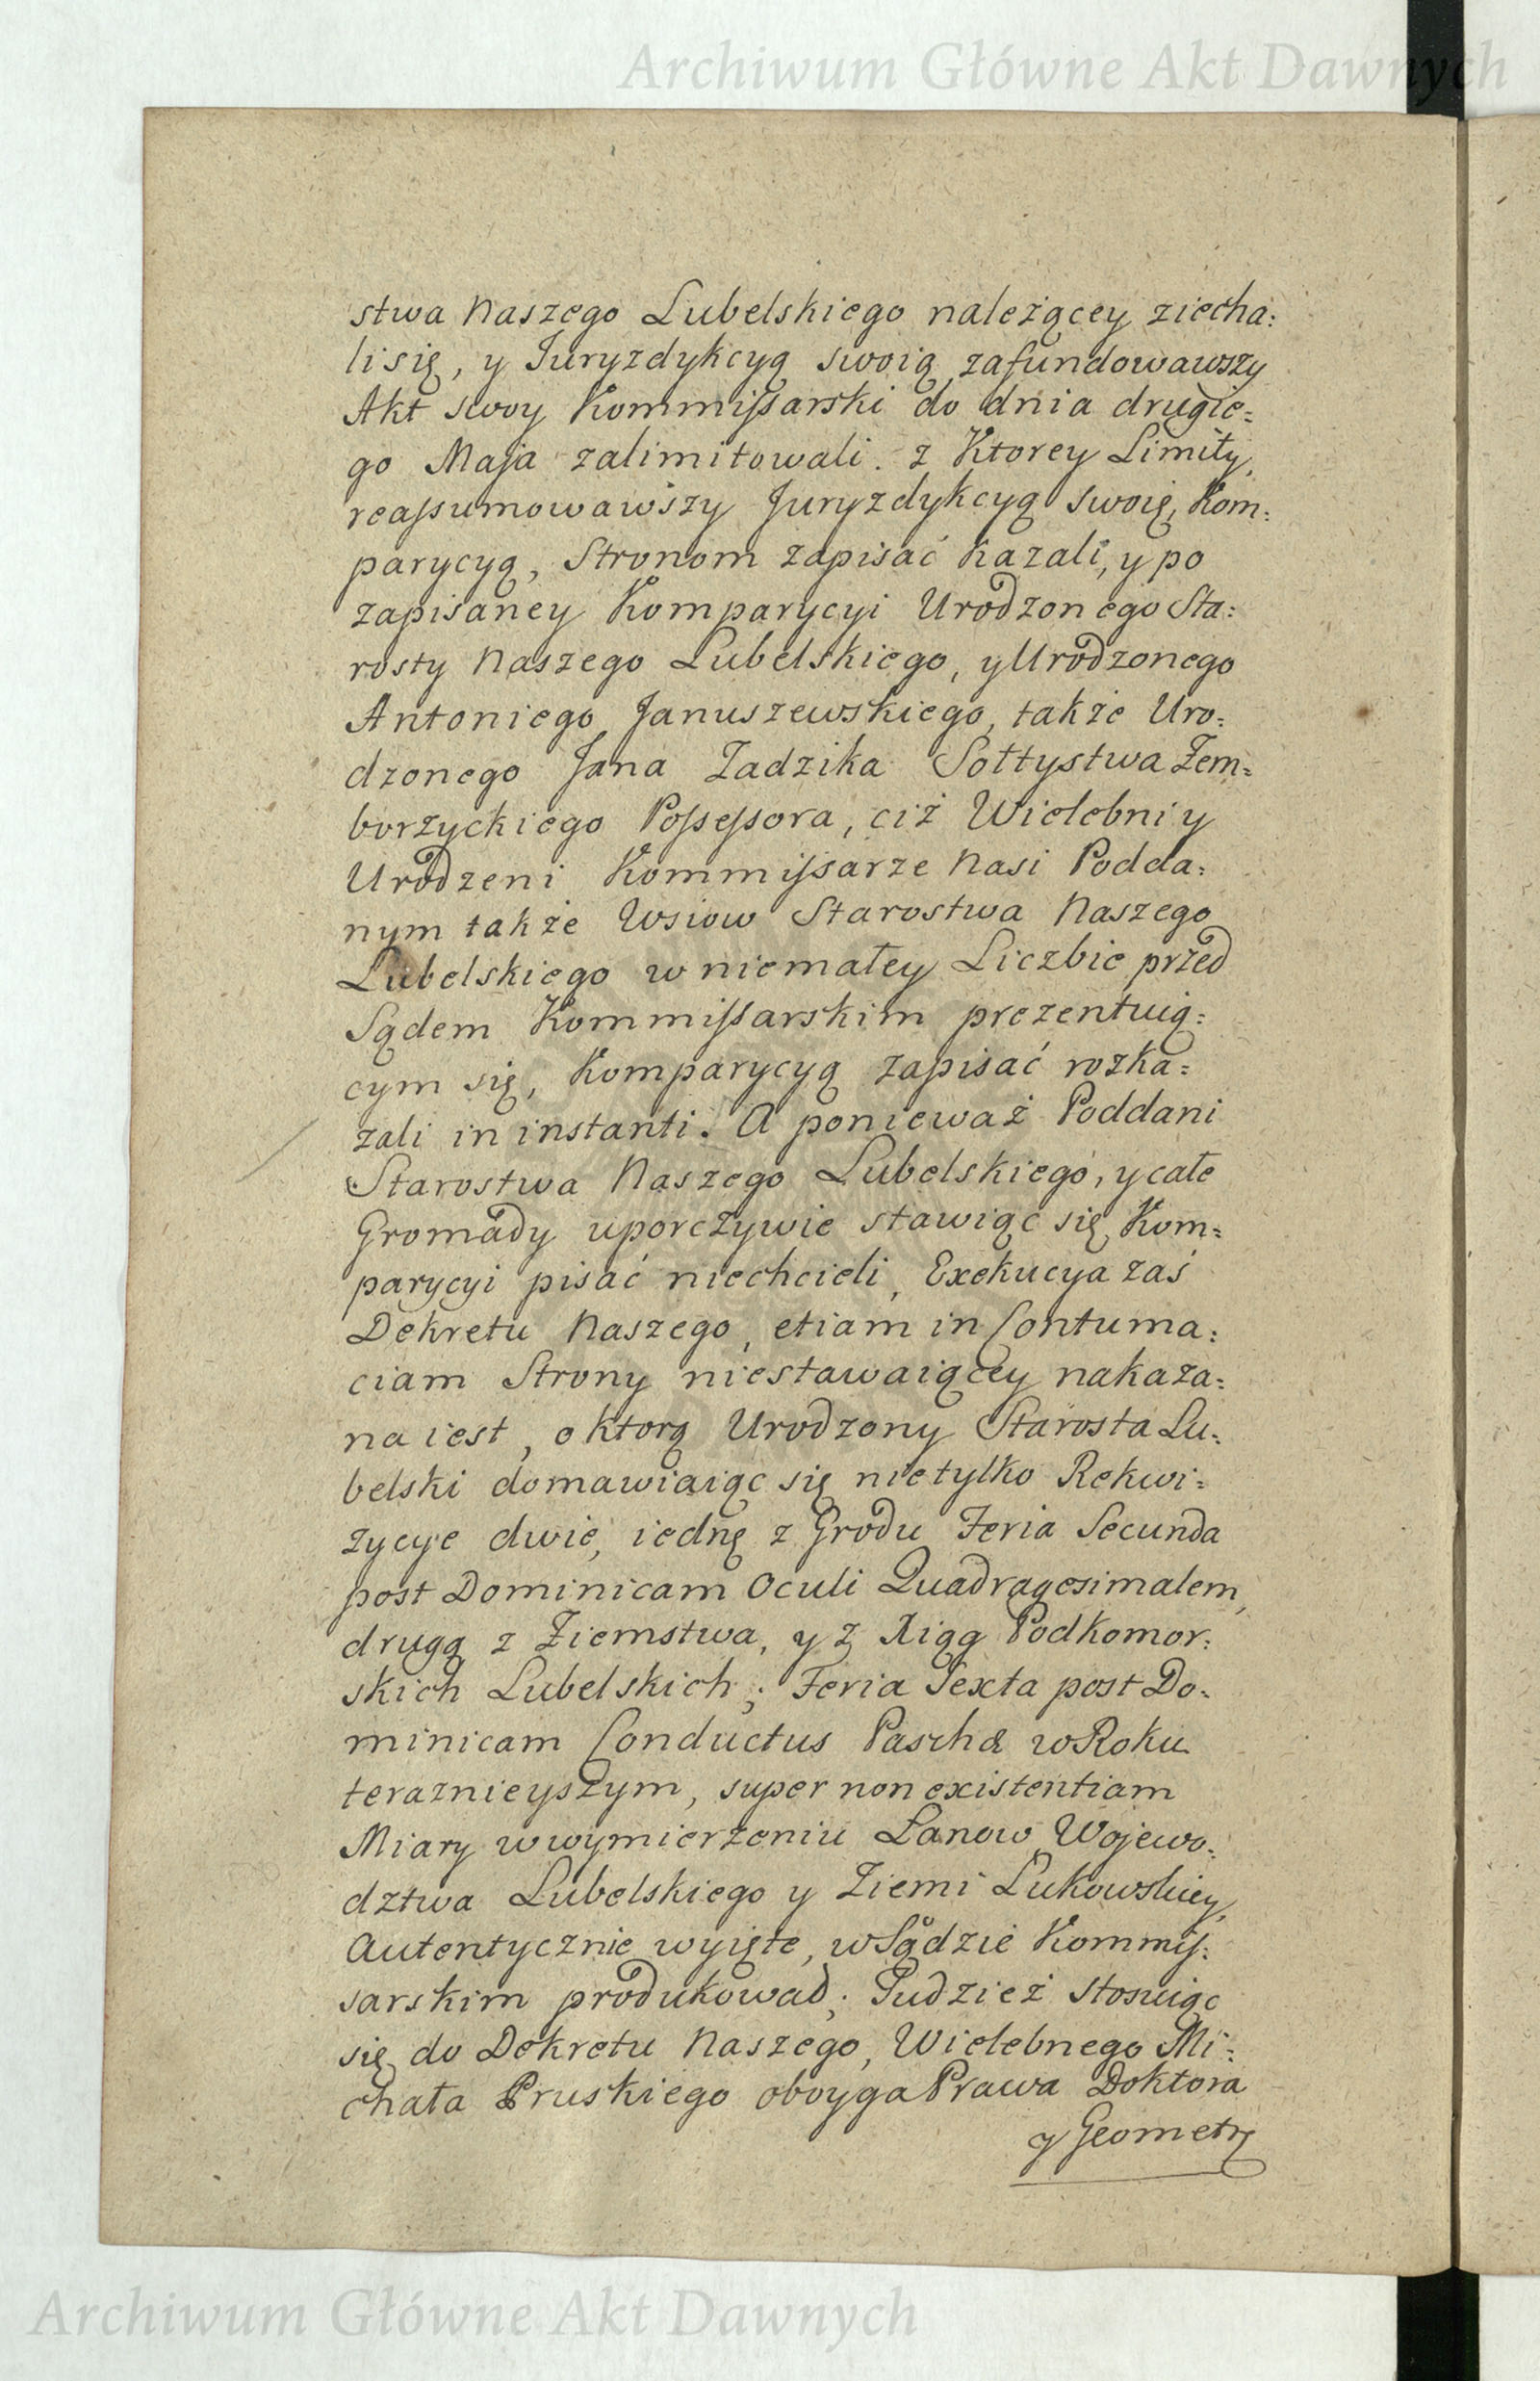 Archiwum Główne Akt Dawnych
stwa Naszego Lubelskiego należącey ziecha:
li się, y Juryzdykcyą swoią zafundowawszy
Akt swoy Kommissarski do dnia drugie:
go Maja zalimitowali. z Ktorey Limity,
reassumowawszy Juryzdykcyą swoię, Kom:
parycyą, Stronom zapisać kazali, y po
zapisaney Komparycyi Urodzonego Sta:
rosty Naszego Lubelskiego, y Urodzonego
Antoniego Januszewskiego, także Uro:
dzonego Jana Zadzika Sołtystwa Zem:
borzyckiego Possessora, ciż Wielebni y
Urodzeni Kommissarze Nasi Podda:
nym także Wsiow Starostwa Naszego
Lubelskiego w niemałey Liczbie przed
Sądem Kommissarskim prezentuią:
cym się, Komparycyą zapisać rozka:
zali in instanti. A ponieważ Poddani
Starostwa Naszego Lubelskiego, y całe
Gromady uporczywie stawiąc się, Kom:
parycyi pisać niechcieli, Exekucya zaś
Dekretu Naszego, etiam in Contuma:
ciam Strony niestawaiącey nakaza:
na iest, o ktorą Urodzony Starosta Lu:
belski domawiaiąc się nietylko Rekwi:
zycye dwie, iednę z Grodu Feria Secunda
post Dominicam Oculi Quadragesimalem,
drugą z Ziemstwa, y z Xiąg Podkomor:
skich Lubelskich; Feria Sexta post Do:
minicam Conductus Paschæ w Roku
teraznieyszym, super non existentiam
Miary w wymierzeniu Łanow Wojewo:
dztwa Lubelskiego y Ziemi Lukowskiey,
Autentycznie wyięte, w Sądzie Kommis:
sarskim produkował; Tudzież stosuiąc
się do Dekretu Naszego, Wielebnego Mi:
chała Pruskiego oboyga Prawa Doktora
y Geometrę
Archiwum Główne Akt Dawnych